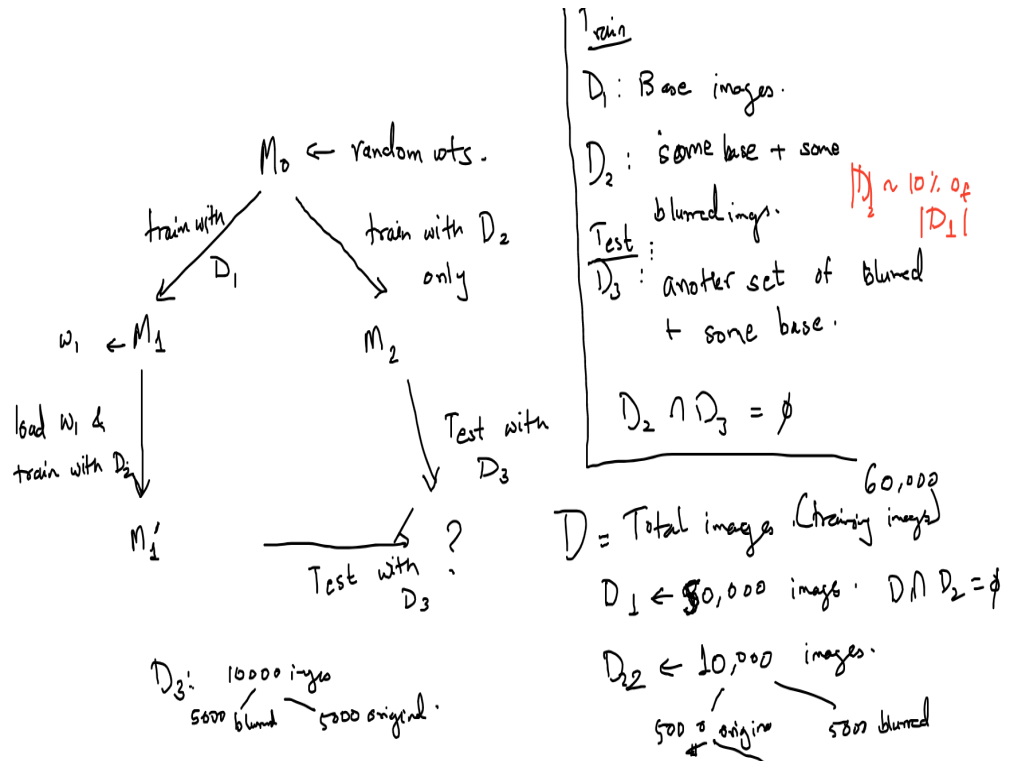 M0 ← random wts.
train with
D1
train with D2
only
w1 ← M1
M2
load w1 &
train with D2
Test with
D3
M1'
?
Test with
D3
D3: 10000 imges
5000 blurred 5000 original.
Train
D1: Base images.
D2: some base + some
blurred imgs.
|D2| ~ 10% of
|D1|
Test:
D3: another set of blurred
+ some base.
D2 ∩ D3 = ϕ
60,000
D = Total images (training images)
D1 ← 50,000 image. D ∩ D2 = ϕ
D2 ← 10,000 images.
5000 origina 5000 blurred